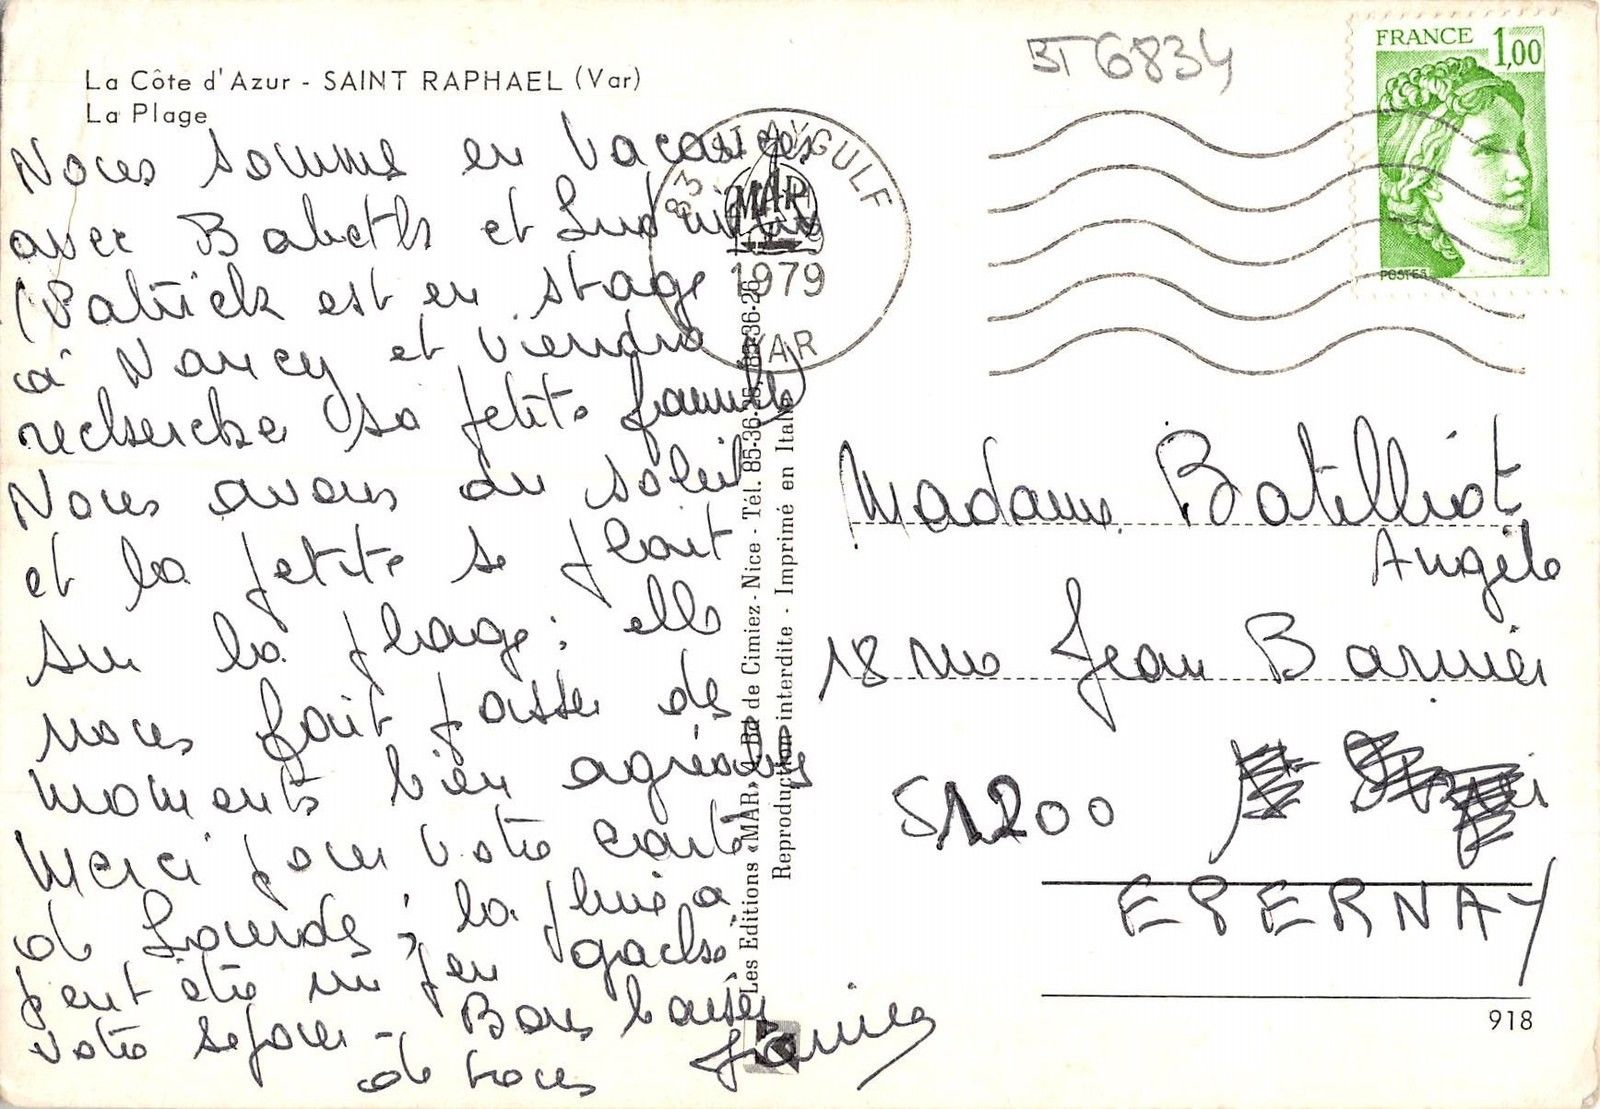 La Côte d'Azur - SAINT RAPHAEL (Var)
La Plage
BT 6834
FRANCE 1,00
POSTES
83 ST AYGULF
1979
VAR
Nous somme en vacances
avec Babeth et Ludivine
(Patrick est en stage
à Nancy et viendra
rechercher sa petite famille)
Nous avons du soleil
et la petite se plait
sur la plage : elle
nous fait passer de
moments bien agréables
Merci pour votre carte
de Lourdes ; la pluie a
peut être un peu gaché
votre séjour - Bons baisers
de tous
Les Editions «MAR», Bd de Cimiez - Nice - Tél. 85-36-25, 85-36-26
Reproduction interdite - Imprimé en Italie
MAR
Madame Batilliot
Angèle
18 rue Jean Barnier
51200
EPERNAY
918